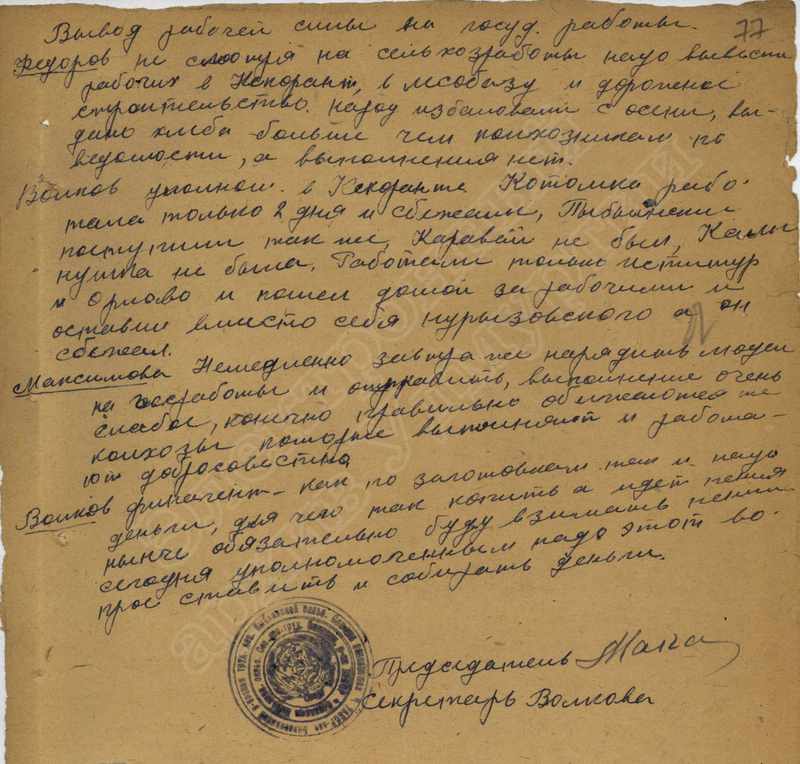 77
Вывод рабочей силы на госуд. работы.
Федоров не смотря на сельхозработы надо вывести
рабочих в Кекорант, в лесобазу и дорожное
строительство. народ избаловали с осени, вы-
дано хлеба больше чем колхозникам по
ведомости, а выполнения нет.
Волков уполном. в Кекоранте Котомка рабо-
тала только 2 дня и сбежали,
поступили так же, Каравай не был,
не была. Работали только
и Орлово и пошел домой за рабочими и
оставил вместо себя а он
сбежал.
Максимова Немедленно завтра же нарядить людей
на госработы и отправить, выполнение очень
слабое, конечно правильно обижаются те
колхозы которые выполняют и работа-
ют добросовестно
Волков финагент - как по заготовкам так и надо
деньги, для чего так копить а идет пения
нынче обязательно буду взимать пении
сегодня уполномоченным надо этот во-
прос ставить и собирать деньги.
Председатель
Секретарь Волкова